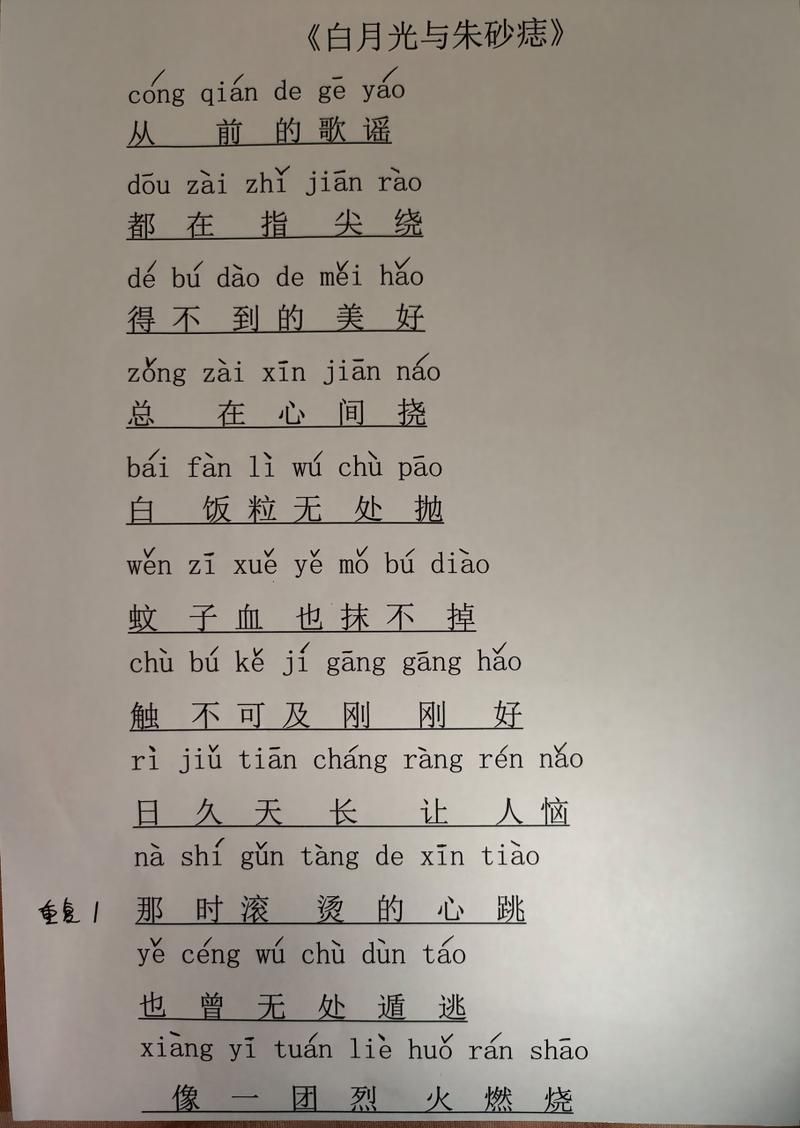 《白月光与朱砂痣》
cóng qián de gē yáo
从 前 的 歌 谣
dōu zài zhǐ jiān rào
都 在 指 尖 绕
dé bú dào de měi hǎo
得 不 到 的 美 好
zǒng zài xīn jiān náo
总 在 心 间 挠
bái fàn lì wú chù pāo
白 饭 粒 无 处 抛
wěn zī xuě yě mǒ bú diào
蚊 子 血 也 抹 不 掉
chù bú kě jí gāng gāng hǎo
触 不 可 及 刚 刚 好
rì jiǔ tiān cháng ràng rén nǎo
日 久 天 长 让 人 恼
nà shí gǔn tàng de xīn tiào
重复1 那 时 滚 烫 的 心 跳
yě céng wú chù dùn táo
也 曾 无 处 遁 逃
xiàng yī tuán liè huǒ rán shāo
像 一 团 烈 火 燃 烧